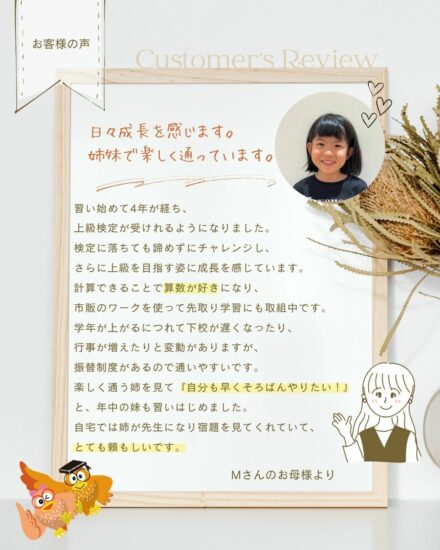 お客様の声
Customer's Review
日々成長を感じます。
姉妹で楽しく通っています。
習い始めて4年が経ち、
上級検定が受けれるようになりました。
検定に落ちても諦めずにチャレンジし、
さらに上級を目指す姿に成長を感じています。
計算できることで算数が好きになり、
市販のワークを使って先取り学習にも取組中です。
学年が上がるにつれて下校が遅くなったり、
行事が増えたりと変動がありますが、
振替制度があるので通いやすいです。
楽しく通う姉を見て『自分も早くそろばんやりたい！』
と、年中の妹も習いはじめました。
自宅では姉が先生になり宿題を見てくれていて、
とても頼もしいです。
Mさんのお母様より